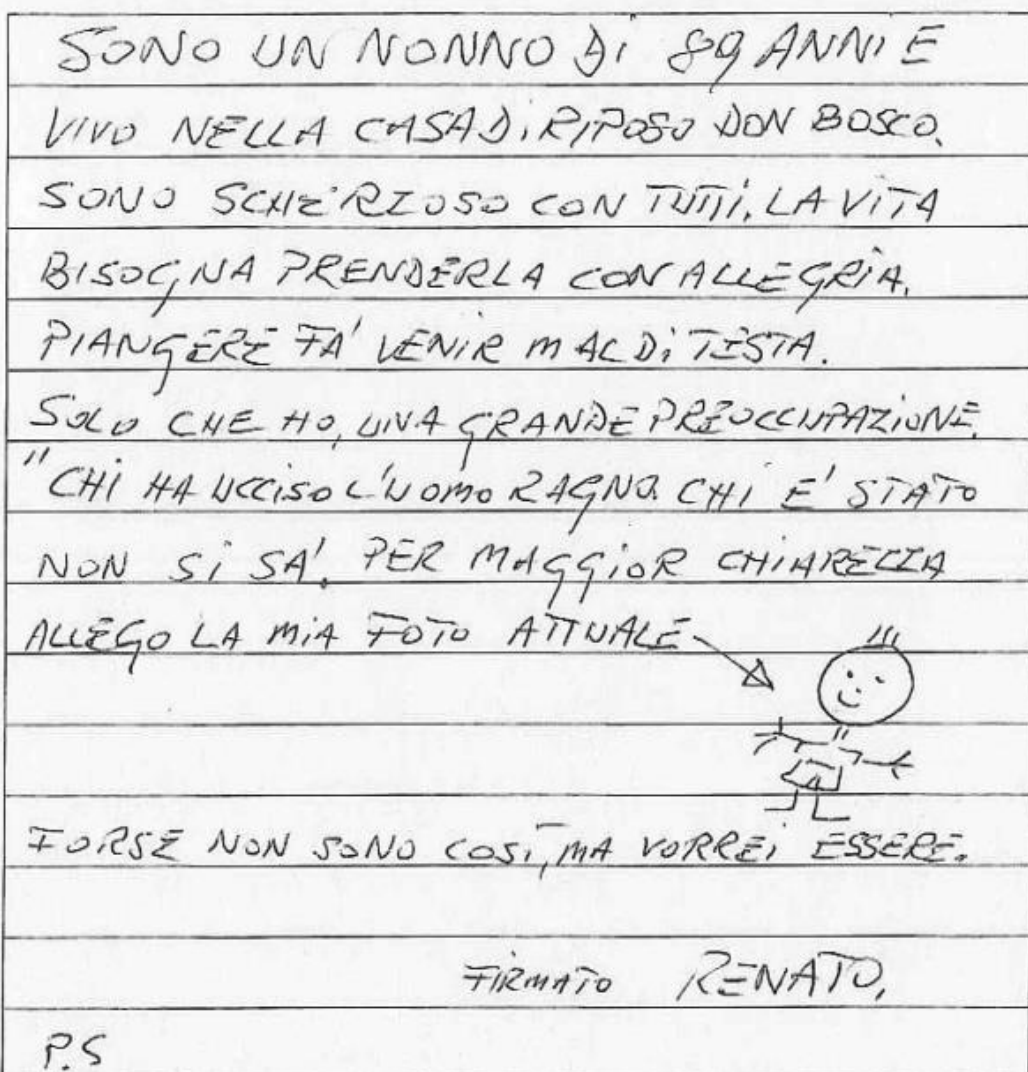 SONO UN NONNO DI 89 ANNI E
VIVO NELLA CASA DI RIPOSO DON BOSCO.
SONO SCHERZOSO CON TUTTI. LA VITA
BISOGNA PRENDERLA CON ALLEGRIA.
PIANGERE FA' VENIR MAL DI TESTA.
SOLO CHE HO, UNA GRANDE PREOCCUPAZIONE.
"CHI HA UCCISO L'UOMO RAGNO. CHI E' STATO
NON SI SA'. PER MAGGIOR CHIAREZZA
ALLEGO LA MIA FOTO ATTUALE
FORSE NON SONO COSI, MA VORREI ESSERE.
FIRMATO RENATO,
P.S